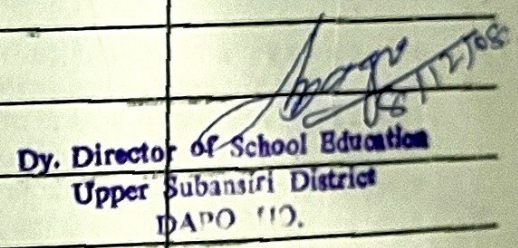 8/12/08
Dy. Director of School Education
Upper Subansiri District
DAPO